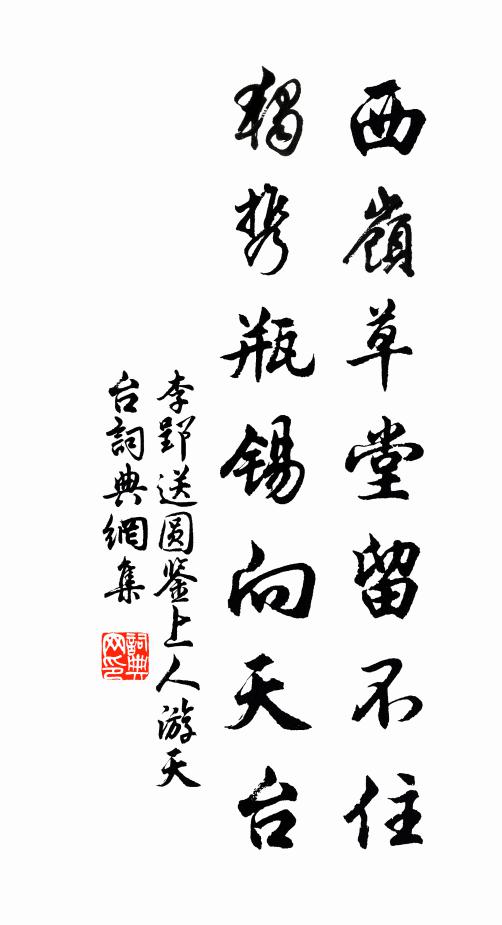 西嶺草堂留不住
獨携瓶锡向天台
李郢送圆鉴上人游天
台詞典網集
詞典
网印